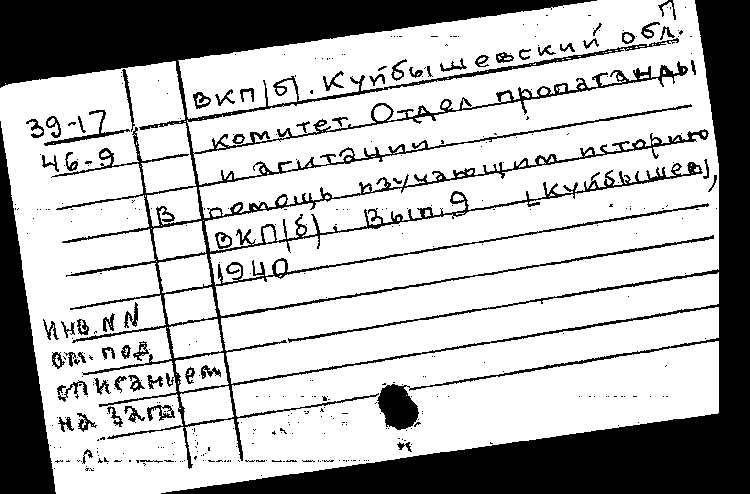 П
ВКП(б). Куйбышевский обл.
39-17
комитет. Отдел пропаганды
46-9
и агитации.
В помощь изучающим историю
ВКП(б). Вып. 9 [Куйбышев],
1940
Инв. NN
от. под
описанием
на запа